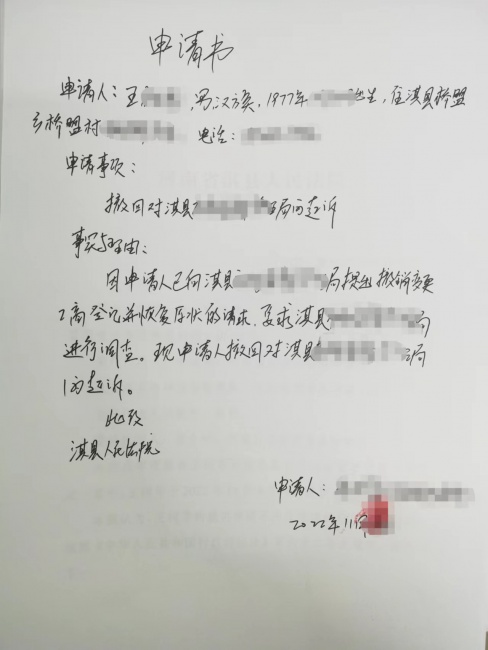 申请书
申请人：王 男汉族，1977年 出生，住淇县桥盟
乡桥盟村 电话：
申请事项：
撤回对淇县 局的起诉
事实与理由：
因申请人已向淇县 局提出撤销变更
登记并恢复原状的请求，要求淇县 局
进行调查。现申请人撤回对淇县 局
的起诉。
此致
淇县人民法院
申请人：
2022年11